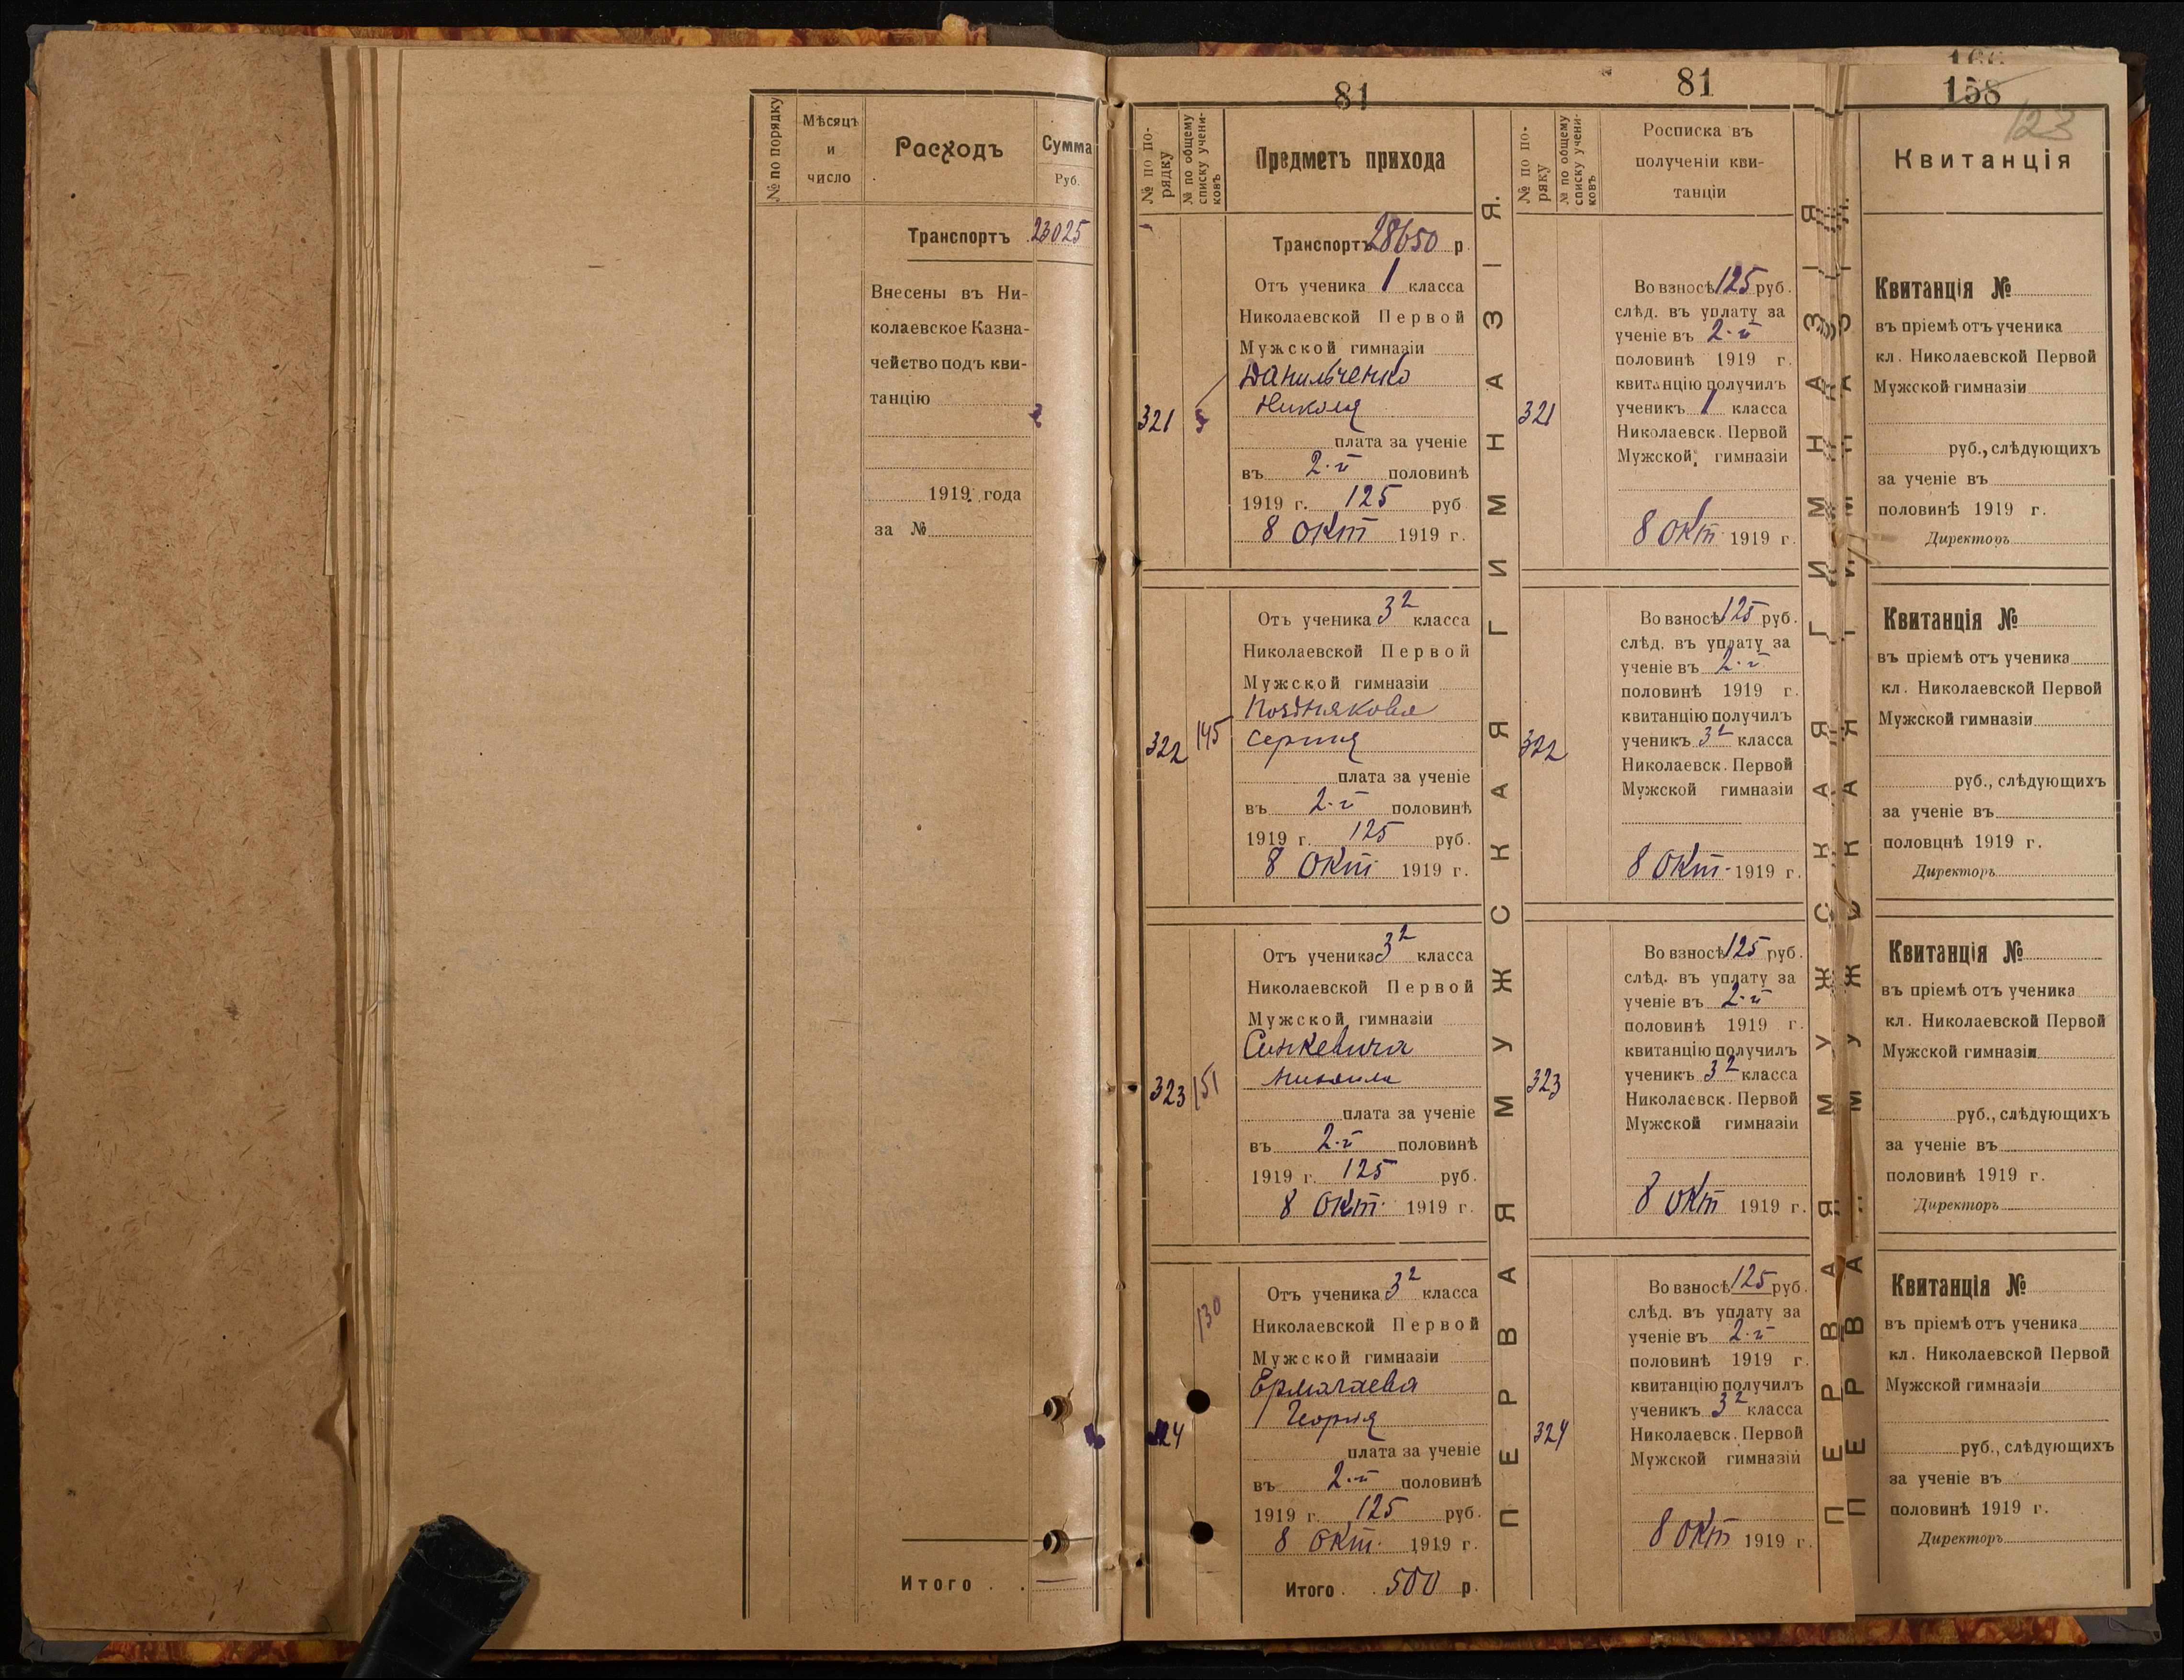 № по порядку
Мѣсяцъ
и
число
Расходъ
Сумма
Руб.
Транспортъ 23025
Внесены въ Ни-
колаевское Казна-
чейство подъ кви-
танцію
1919 года
за №
Итого . .
81
№ по по-
рядку
№ по общему
списку учени-
ковъ
Предметъ прихода
Транспортъ 28650 р
Отъ ученика 1 класса
Николаевской Первой
Мужской гимназіи
Данильченко
Николя
321
5
плата за ученіе
въ 2-й половинѣ
1919 г. 125 руб
8 Окт 1919 г.
Отъ ученика 3² класса
Николаевской Первой
Мужской гимназіи
Позднякова
322 145 Сергия
плата за ученіе
въ 2-й половинѣ
1919 г. 125 руб.
8 Окт. 1919 г.
Отъ ученика 3² класса
Николаевской Первой
Мужской гимназіи
Синкевича
323 151 Михаила
плата за ученіе
въ 2-й половинѣ
1919 г. 125 руб.
8 Окт. 1919 г.
130
Отъ ученика 3² класса
Николаевской Первой
Мужской гимназіи
Ермагаева
Георгия
324
плата за ученіе
въ 2-й половинѣ
1919 г. 125 руб.
8 Окт. 1919 г.
Итого . . 500 р.
ПЕРВАЯ МУЖСКАЯ ГИМНАЗІЯ.
81
№ по по-
ряку
№ по общему
списку учени-
ковъ
Росписка въ
полученіи кви-
танціи
Во взносѣ 125 руб.
слѣд. въ уплату за
ученіе въ 2-й
половинѣ 1919 г.
квитанцію получилъ
321 ученикъ 1 класса
Николаевск. Первой
Мужской гимназіи
8 Окт 1919 г.
Во взносѣ 125 руб.
слѣд. въ уплату за
ученіе въ 2-й
половинѣ 1919 г.
квитанцію получилъ
322 ученикъ 3² класса
Николаевск. Первой
Мужской гимназіи
8 Окт. 1919 г.
Во взносѣ 125 руб.
слѣд. въ уплату за
ученіе въ 2-й
половинѣ 1919 г.
квитанцію получилъ
323 ученикъ 3² класса
Николаевск. Первой
Мужской гимназіи
8 Окт 1919 г.
Во взносѣ 125 руб.
слѣд. въ уплату за
ученіе въ 2-й
половинѣ 1919 г.
квитанцію получилъ
ученикъ 3² класса
324 Николаевск. Первой
Мужской гимназій
8 Окт 1919 г.
ПЕРВАЯ МУЖСКАЯ ГИМНАЗІЯ
158
123
Квитанція
Квитанція №
въ пріемѣ отъ ученика
кл. Николаевской Первой
Мужской гимназіи
руб., слѣдующихъ
за ученіе въ
половинѣ 1919 г.
Директоръ
Квитанція №
въ пріемѣ отъ ученика
кл. Николаевской Первой
Мужской гимназіи
руб., слѣдующихъ
за ученіе въ
половцнѣ 1919 г.
Директоръ
Квитанція №
въ пріемѣ отъ ученика
кл. Николаевской Первой
Мужской гимназіи
руб., слѣдующихъ
за ученіе въ
половинѣ 1919 г.
Директоръ
Квитанція №
въ пріемѣ отъ ученика
кл. Николаевской Первой
Мужской гимназіи
руб., слѣдующихъ
за ученіе въ
половинѣ 1919 г.
Директоръ